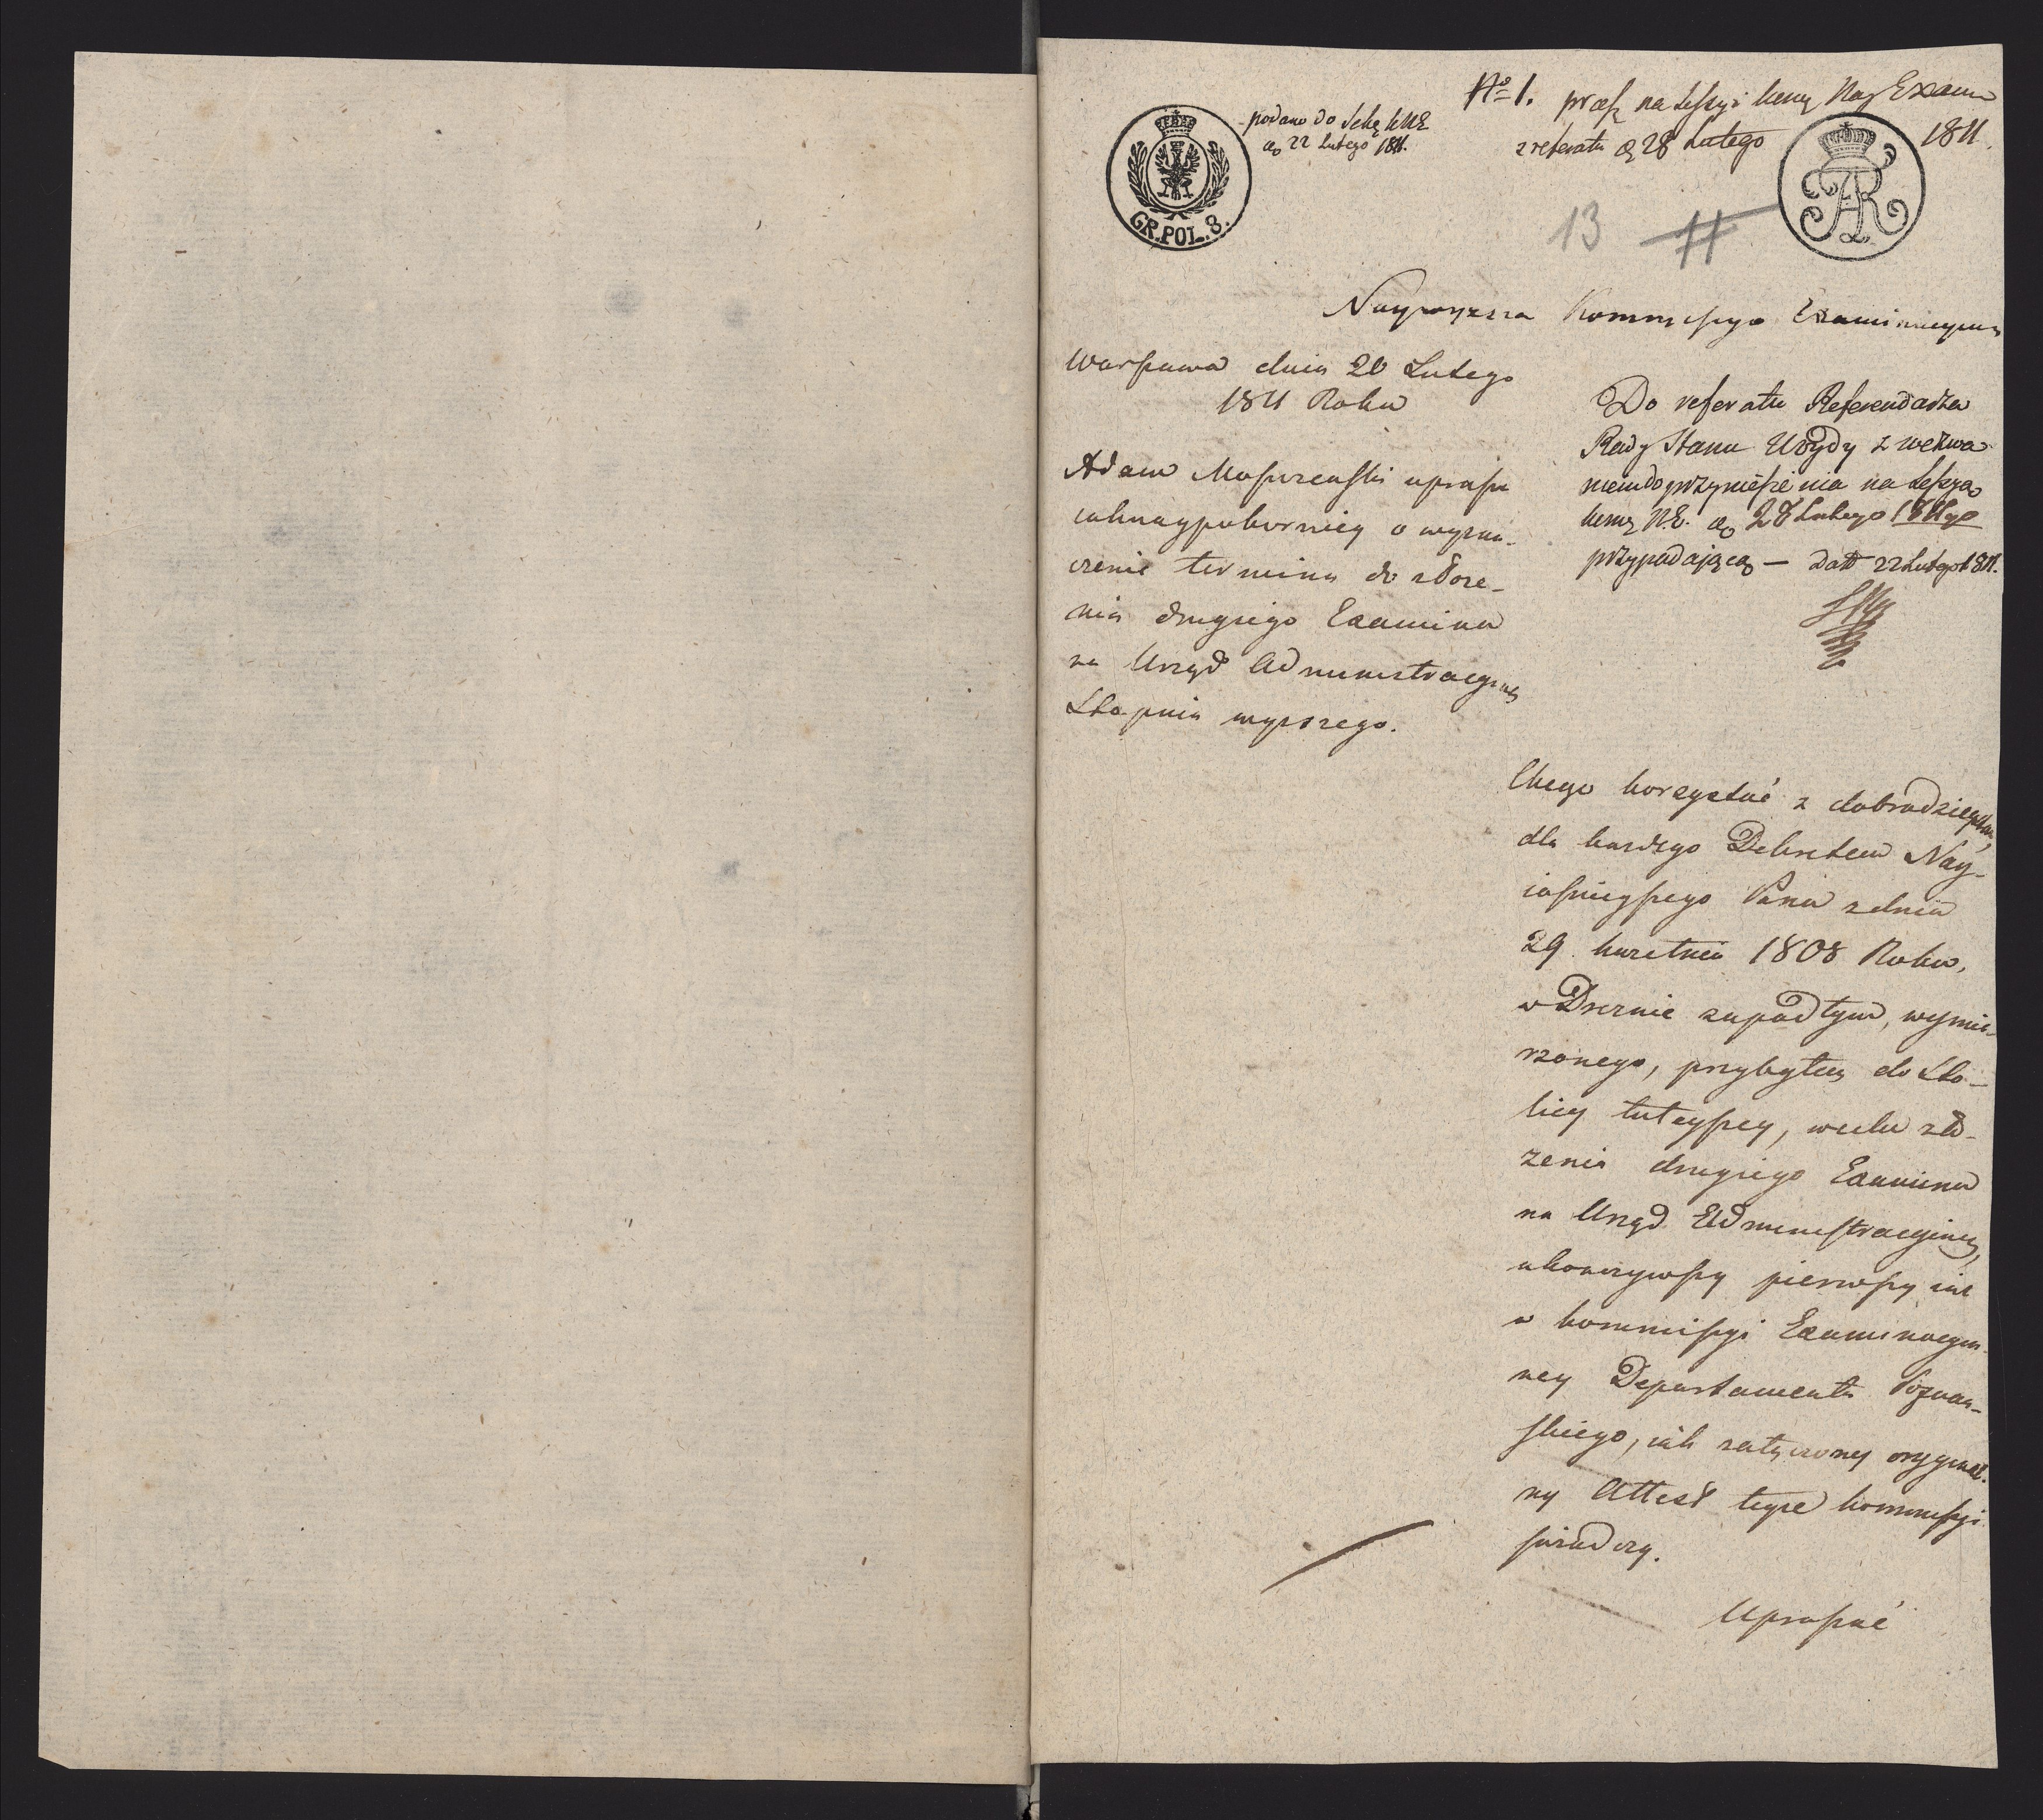 No 1. præs na Sessyi Kom. Nay Exam
z referatu d. 28 Lutego 1811.
podano do Sekr. KNE
d. 22 Lutego 1811.
GR.POL.8.
13 11
Naywyższa Kommissyo Examinacyina
Warszawa dnia 20 Lutego
1811 Roku
Adam uprasza
iaknaypokorniey o wyzna-
czenie terminu do złoże-
nia drugiego Examinu
na Urząd Administracyiny
Stopnia wyższego.
Do referatu Referendarza
Rady Stanu Woydy z wezwa
niem do przyniesienia na Sessyą
Kom. N.E. d. 28 Lutego 1811go
przypadaiącą — Dat 22 Lutego 1811.
Chcąc korzystać z dobrodzieystwa,
dla każdego Dekretem Nay-
iaśnieyszego Pana z dnia
29. kwietnia 1808 Roku,
w Dreznie zapadłym, wymie-
rzonego, przybyłem do Sto-
licy tuteyszey, w celu zło-
żenia drugiego Examinu
na Urząd Administracyiny,
ukończywszy pierwszy iuż
w kommissyi Examinacyi-
ney Departamentu Poznań-
skiego, iak załączony orygynal-
ny Attest teyże kommissyi
świadczy.
Upraszać